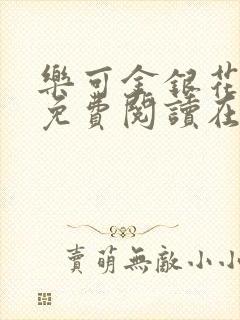 樂可金銀花
免費閱讀在
賣萌無敵小小